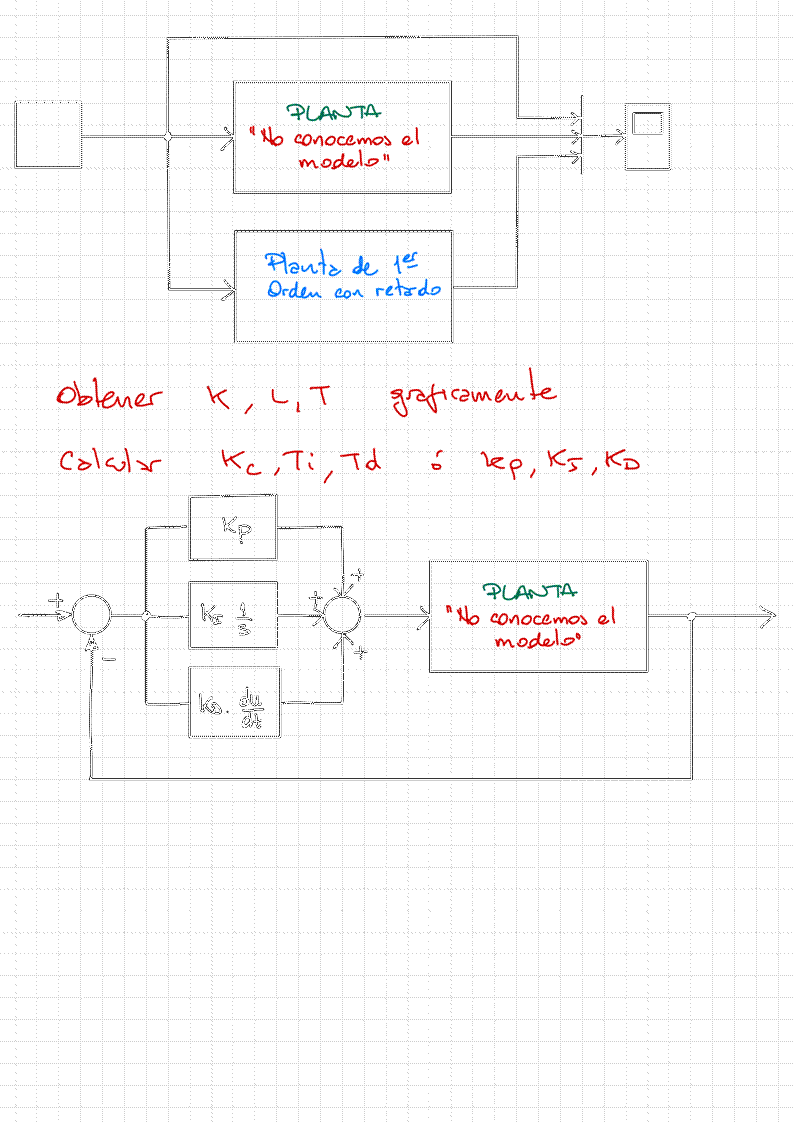 PLANTA
"No conocemos el
modelo"
Planta de 1er
Orden con retardo
Obtener K, L, T graficamente
Calcular Kc, Ti, Td ó kp, KI, KD
Kp
+ + +
KI 1/s
- +
KD · du/dt
PLANTA
"No conocemos el
modelo"